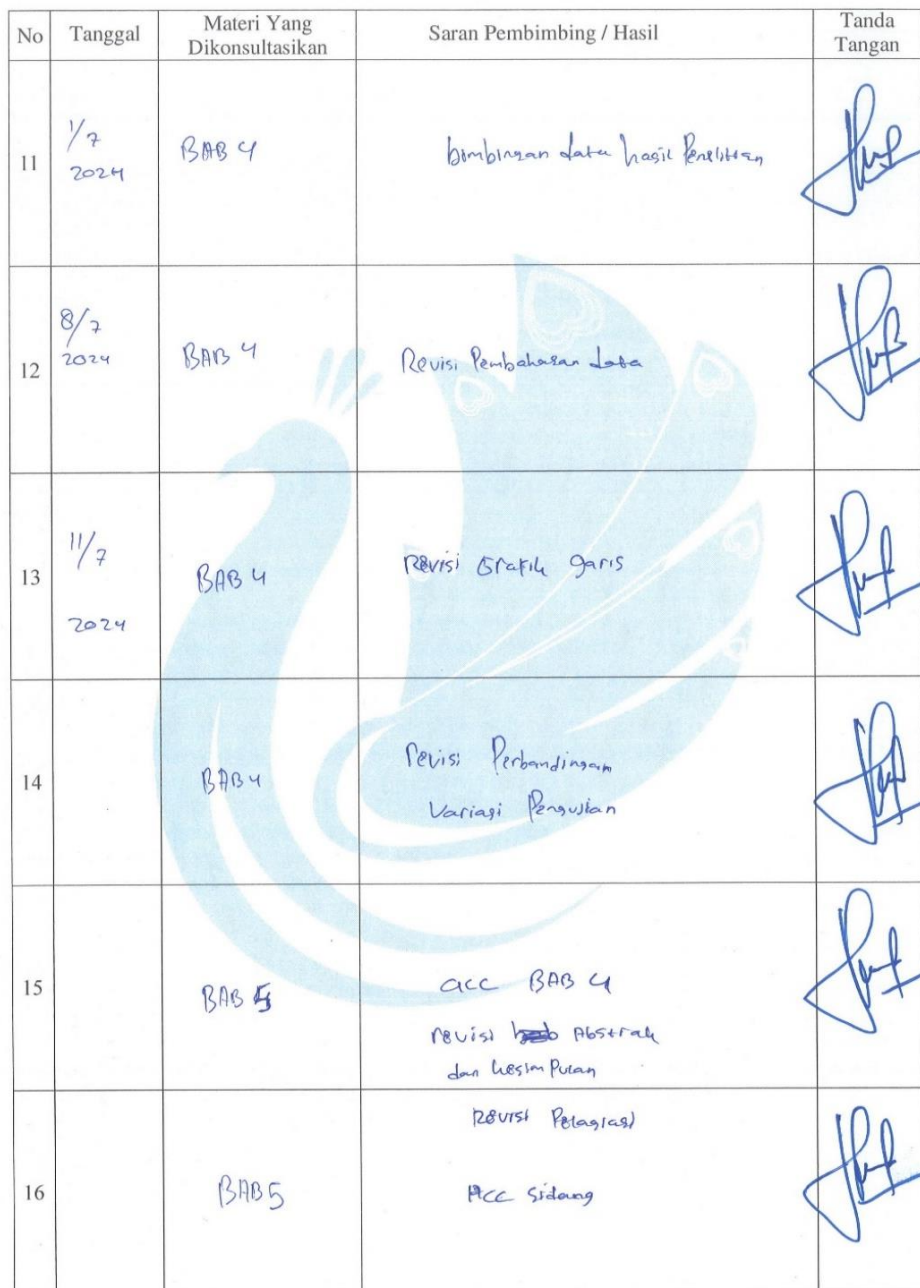 No Tanggal Materi Yang Dikonsultasikan Saran Pembimbing / Hasil Tanda Tangan
11 1/7 2024 BAB 4 bimbingan data hasil Penelitian
12 8/7 2024 BAB 4 Revisi Pembahasan data
13 11/7 2024 BAB 4 Revisi Grafik garis
14 BAB 4 revisi Perbandingan
Variasi Pengujian
15 BAB 5 acc BAB 4
revisi Abstrak
dan kesimpulan
16 BAB 5 Revisi Pelagiasi
ACC Sidang